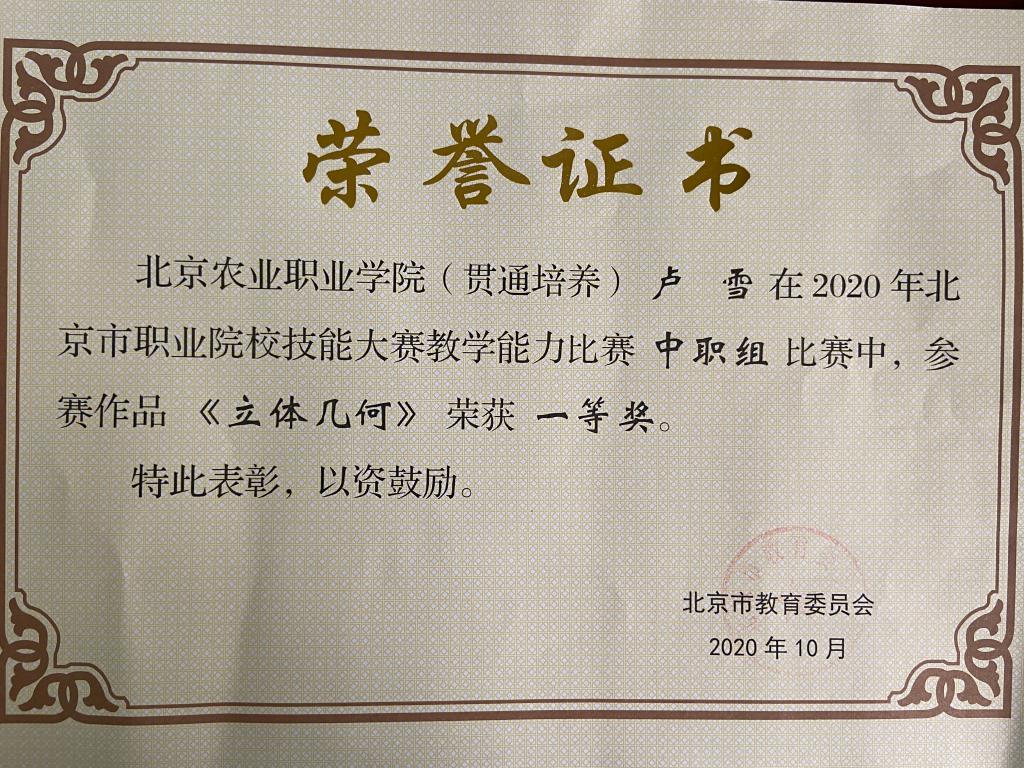 荣誉证书
北京农业职业学院（贯通培养） 卢 雪 在 2020 年北
京市职业院校技能大赛教学能力比赛 中职组 比赛中，参
赛作品 《立体几何》 荣获 一等奖。
特此表彰，以资鼓励。
北京市教育委员会
2020 年 10 月